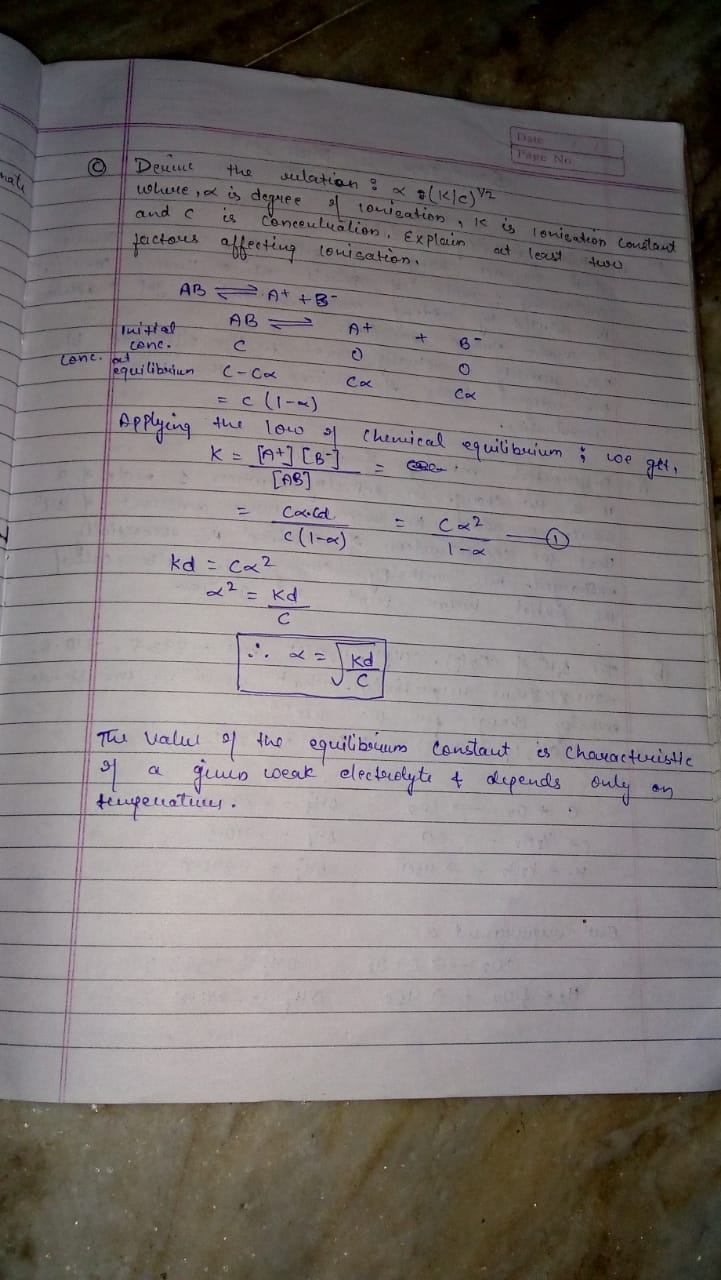 Date
Page No
© Derive the relation : α = (K/c)^1/2
where, α is degree of ionisation, K is ionisation constant
and c is concentration. Explain at least two
factors affecting ionisation.
AB ⇌ A+ + B-
AB ⇌ A+ + B-
Initial conc. C 0 0
conc. at equilibrium C-Cα Cα Cα
= C (1-α)
Applying the low of Chemical equilibrium ; we get,
K = [A+] [B-] / [AB] =
= Cα.Cα / C(1-α) = Cα2 / 1-α — ①
Kd = Cα2
α2 = Kd / C
∴ α = √Kd / C
The value of the equilibrium constant is characteristic
of a given weak electrolyte & depends only on
temperature.